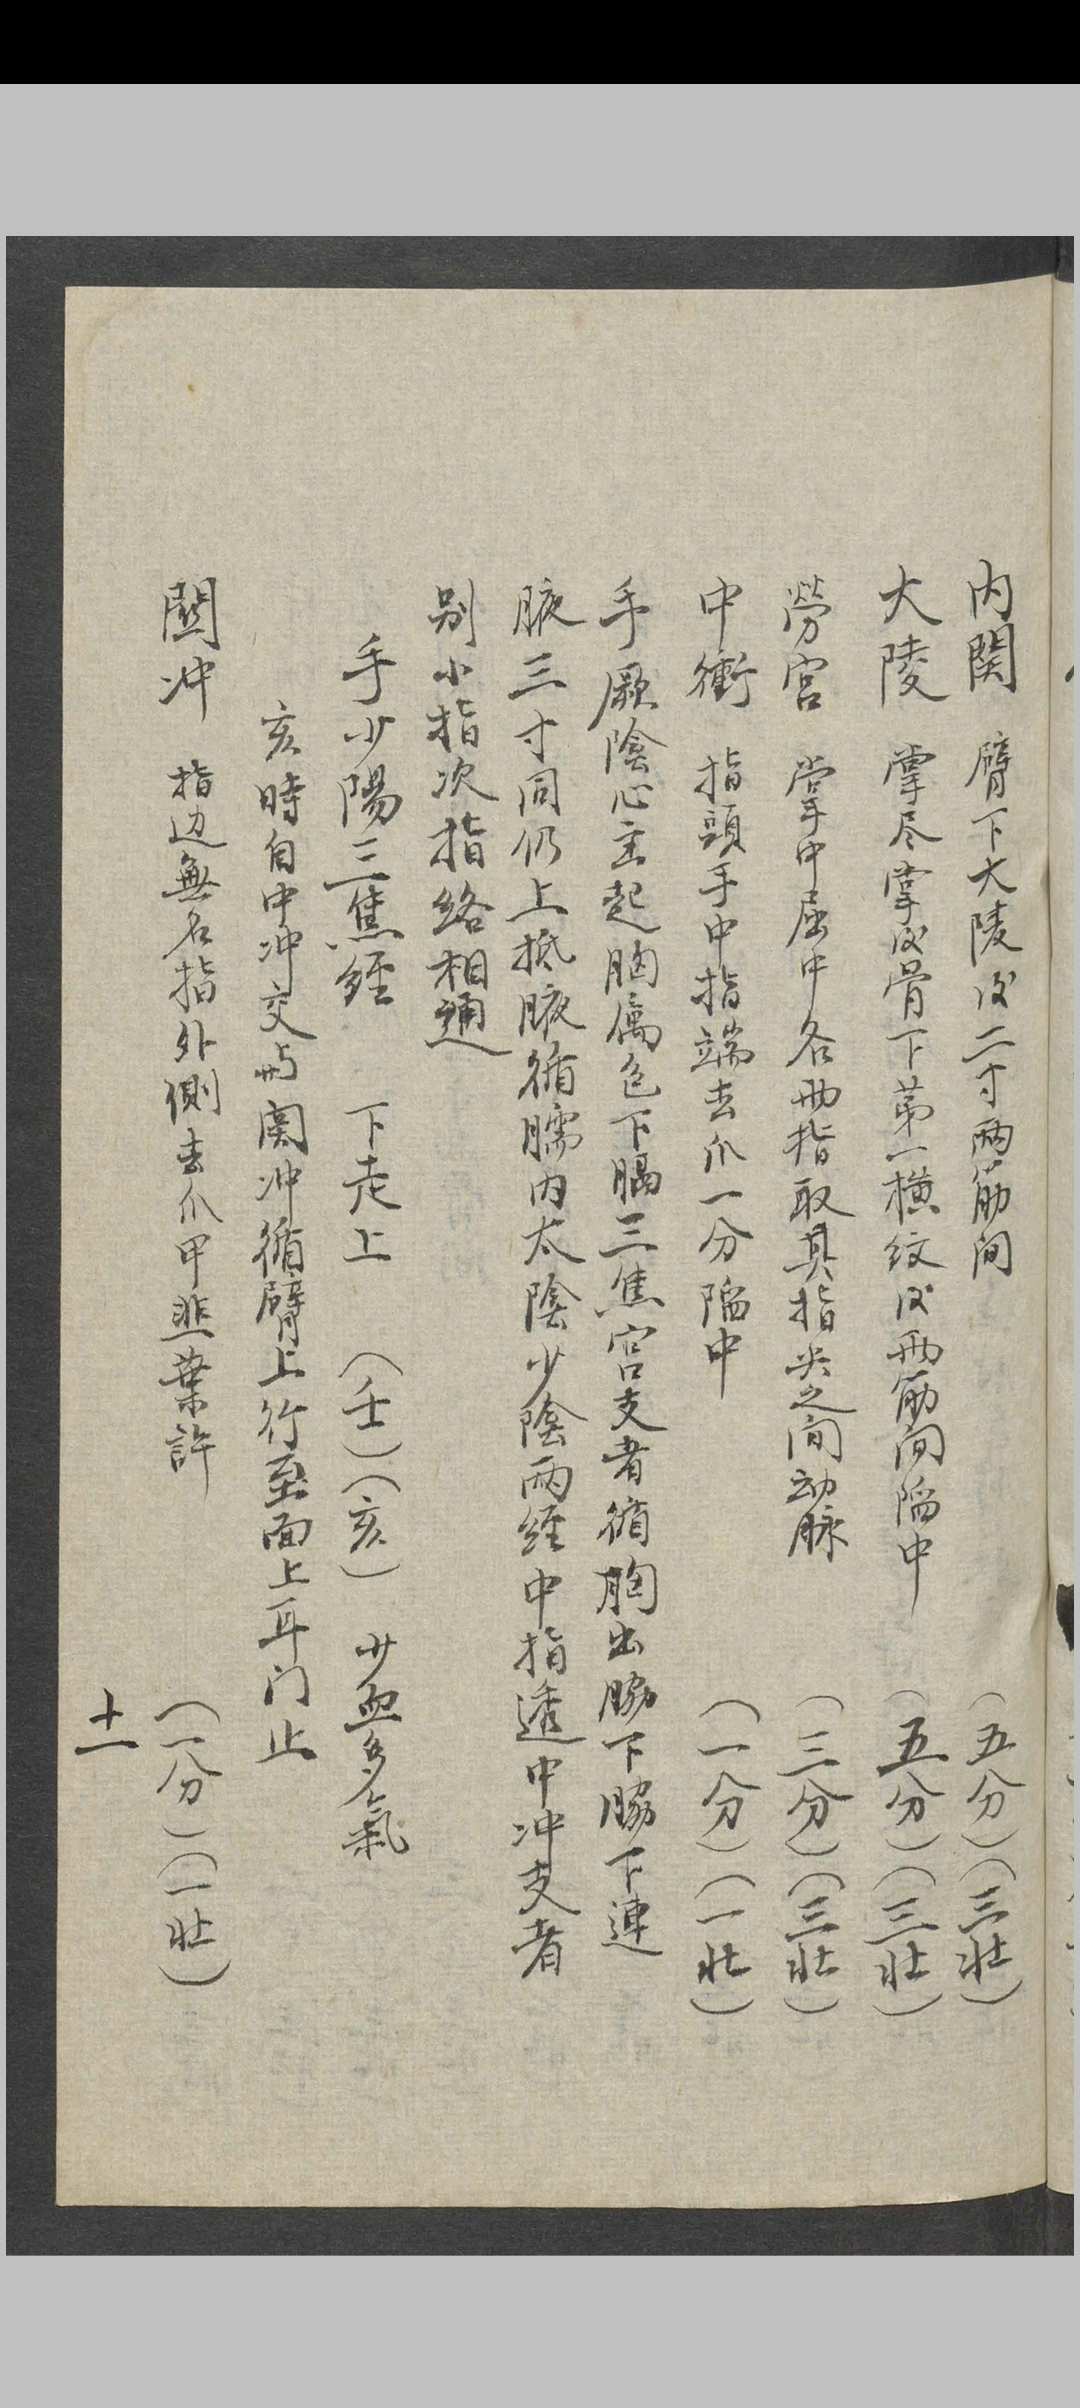 内関　臂下大陵後二寸兩筋间　（五分）（三壮）
大陵　掌尽掌後骨下苐一横纹後兩筋间陷中　（五分）（三壮）
勞宫　掌中屈中名兩指取其指尖之间动脉　（三分）（三壮）
中衝　指頭手中指端去爪一分陷中　（一分）（一壮）
手厥陰心主起胸属包下膈三焦宫支者循胸出脇下脇下連
腋三寸同仍上抵腋循臑内太陰少陰兩经中指透中冲支者
别小指次指络相通
手少陽三焦經　下走上　（壬）（亥）　少血多氣
亥時自中冲交与関冲循臂上行至面上耳门止
関冲　指边無名指外側去爪甲韭葉許　（一分）（一壮）
十一